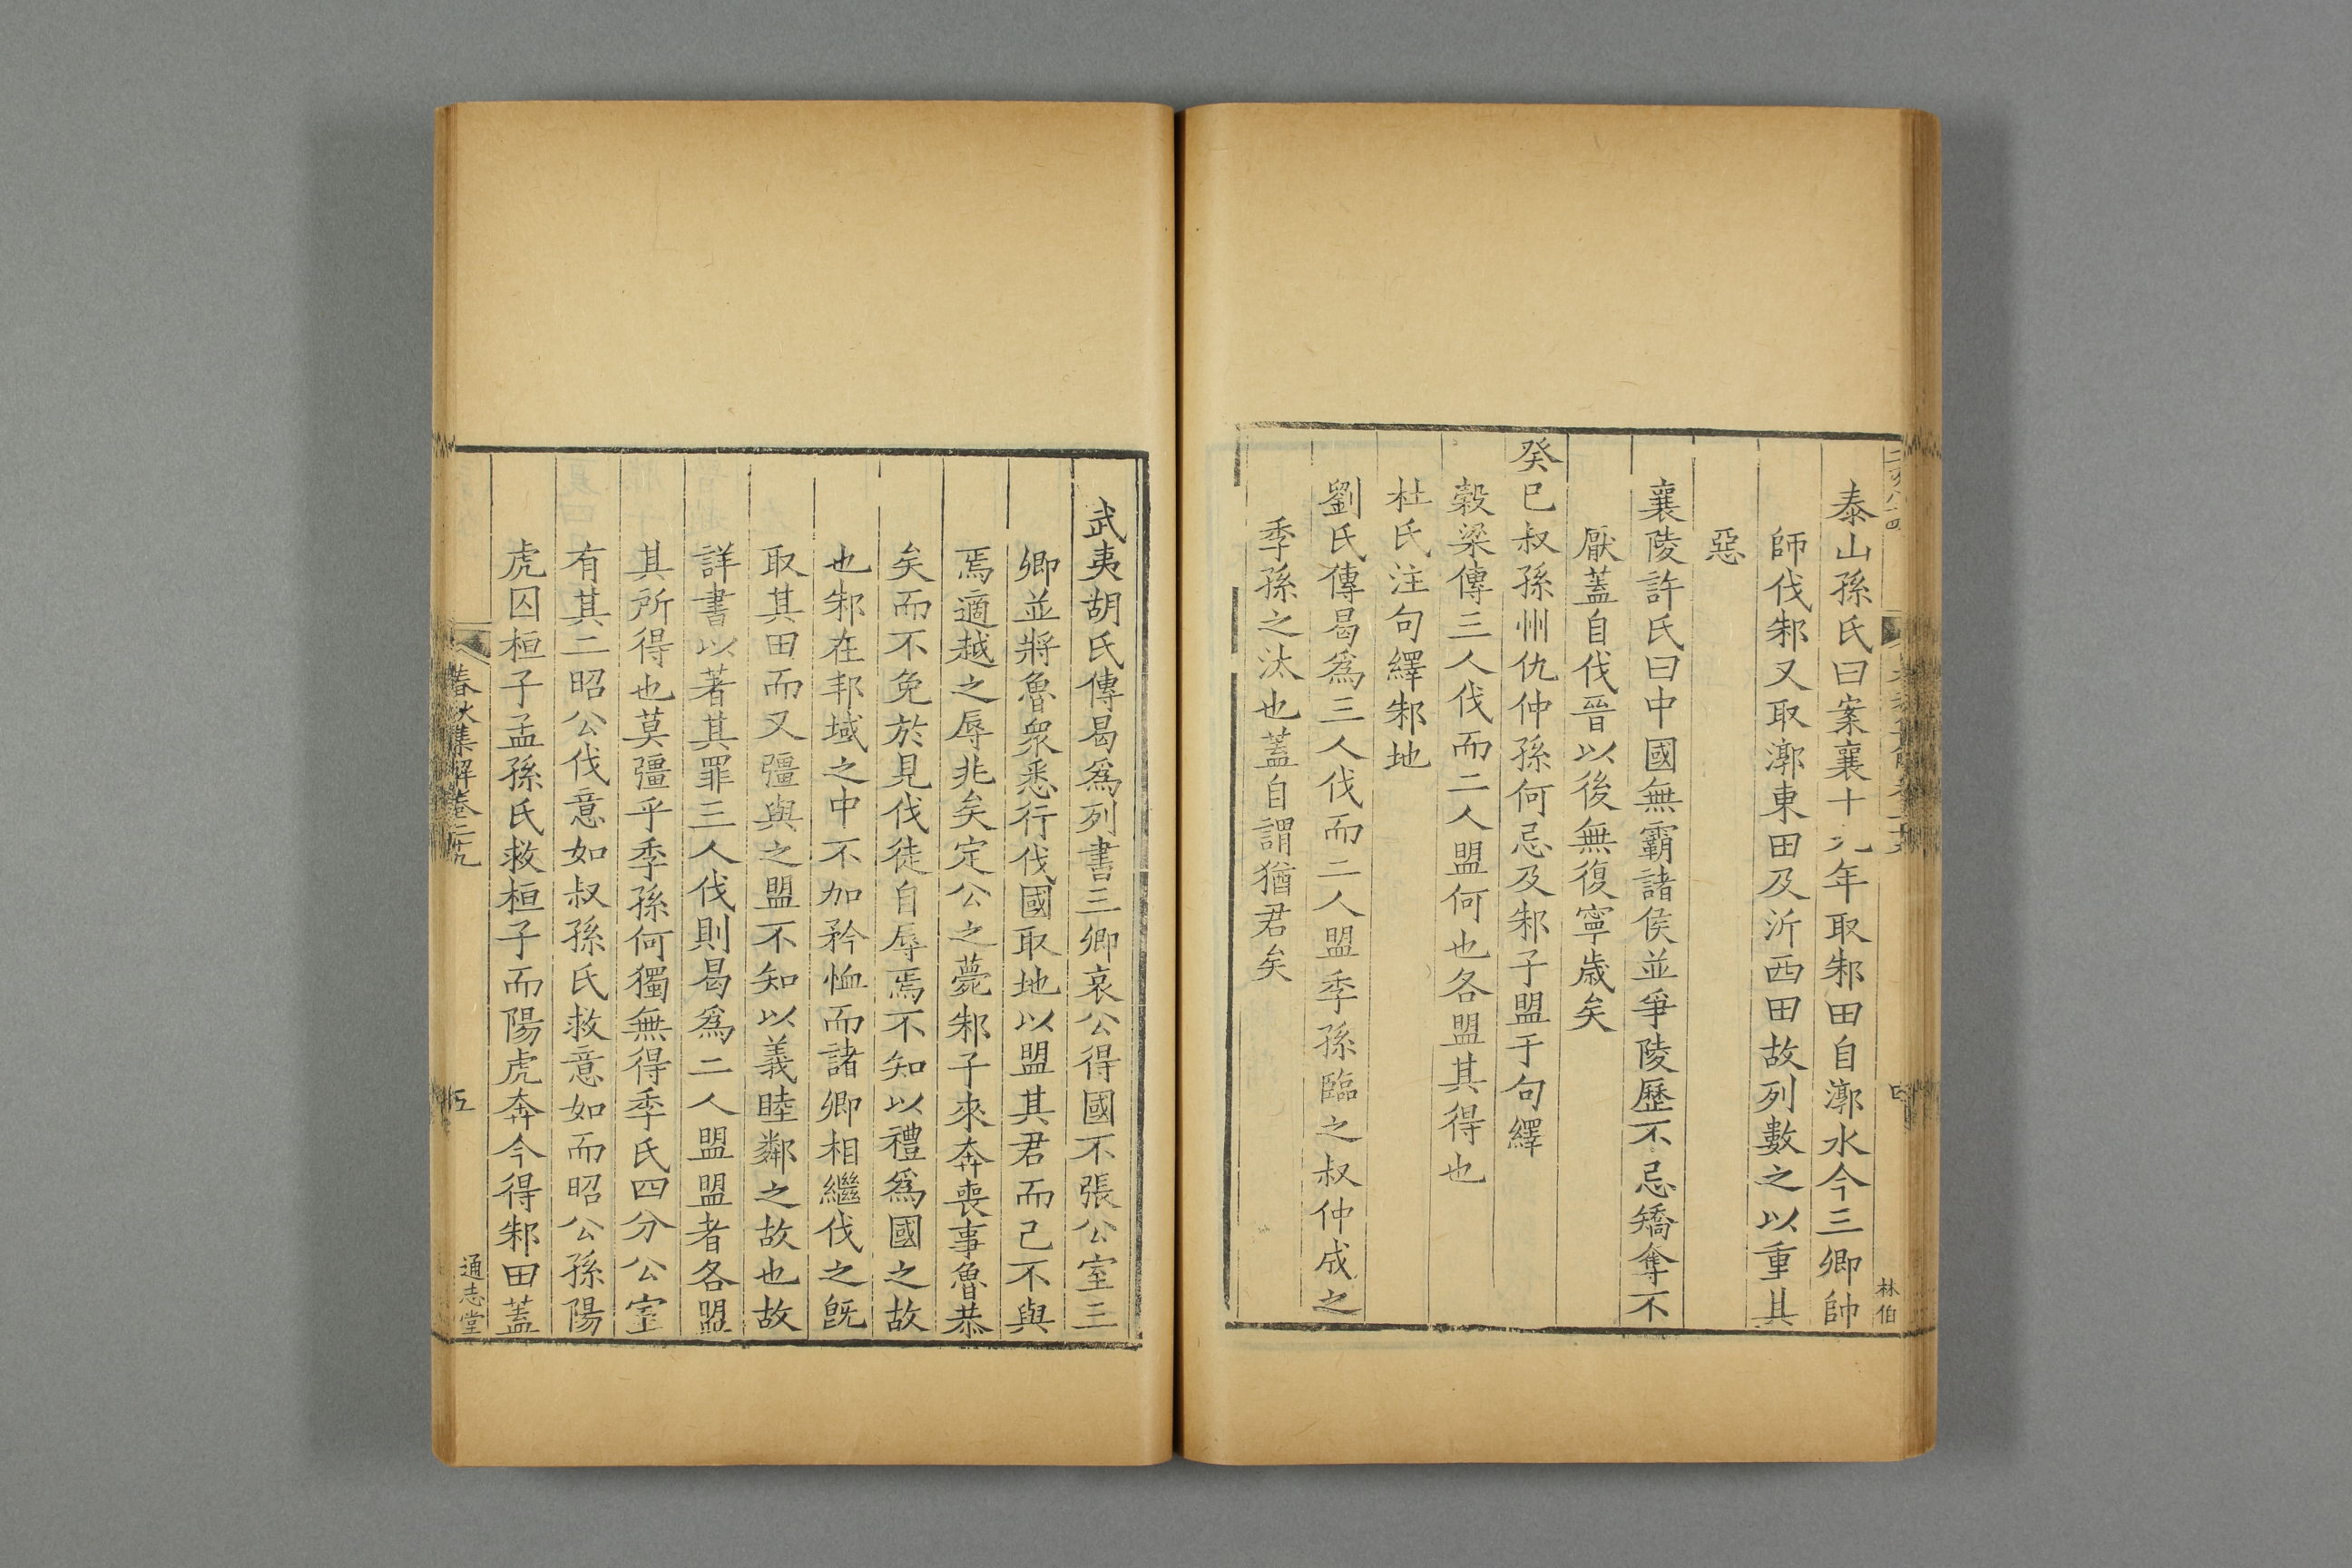 泰山孫氏曰案襄十九年取邾田自漷水今三卿帥
師伐邾又取漷東田及沂西田故列數之以重其
惡
襄陵許氏曰中國無霸諸侯並爭陵歷不忌矯奪不
厭蓋自伐晉以後無復寧歲矣
癸巳叔孫州仇仲孫何忌及邾子盟于句繹
穀梁傳三人伐而二人盟何也各盟其得也
杜氏注句繹邾地
劉氏傳曷爲三人伐而二人盟季孫臨之叔仲成之
季孫之汰也蓋自謂猶君矣
四
林伯
武夷胡氏傳曷爲列書三卿哀公得國不張公室三
卿並將魯衆悉行伐國取地以盟其君而己不與
焉適越之辱兆矣定公之薨邾子來奔喪事魯恭
矣而不免於見伐徒自辱焉不知以禮爲國之故
也邾在邦域之中不加矜恤而諸卿相繼伐之旣
取其田而又彊與之盟不知以義睦鄰之故也故
詳書以著其罪三人伐則曷爲二人盟盟者各盟
其所得也莫彊乎季孫何獨無得季氏四分公室
有其二昭公伐意如叔孫氏救意如而昭公孫陽
虎囚桓子孟孫氏救桓子而陽虎奔今得邾田蓋
春秋集解卷二十九
五
通志堂